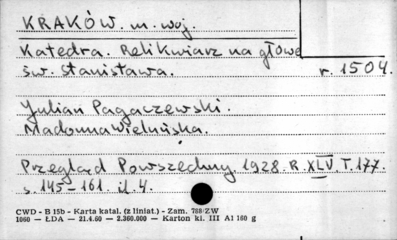 KRAKÓW. m. woj.
Katedra. Relikwiarz na głowę
św. Stanisława.
r. 1504.
Julian Pagaczewski.
Madonna Wieluńska.
Przegląd Powszechny 1928. R. XLV. T. 177.
s. 145-161. il. 4.
CWD - B 15b - Karta katal. (z liniat.) - Zam. 788/ZW
1060 — ŁDA — 21.4.60 - 2.360.000 — Karton kl. III A1 160 g